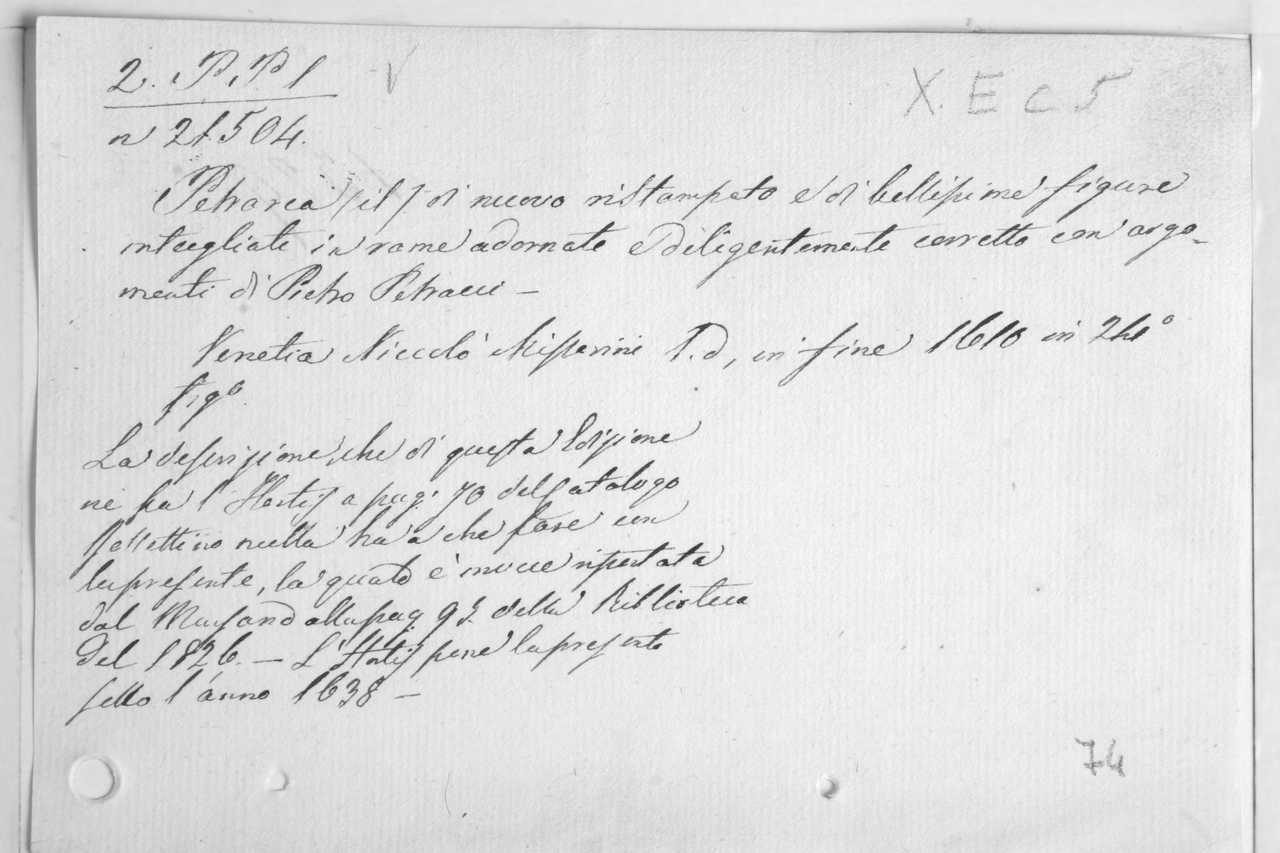 2. P.P.1 V
X. E C 5
n 21504.
Petrarca (il) di nuovo ristampato e di bellissime figure
intagliate in rame adornate e diligentemente corretto con argo-
menti di Pietro Petracci —
Venetia Niccolò Misserini S.d, in fine 1610 in 24°
figº
La descrizione, che di questa Edizione
ne fa l'Hortis a pag: 70 del Catalogo
Rossettino nulla ha a che fare con
la presente, la quale è invece riportata
dal Marsand alla pag. 93. della Biblioteca
del 1826. — L'Hortis pone la presente
sotto l'anno 1638 —
74